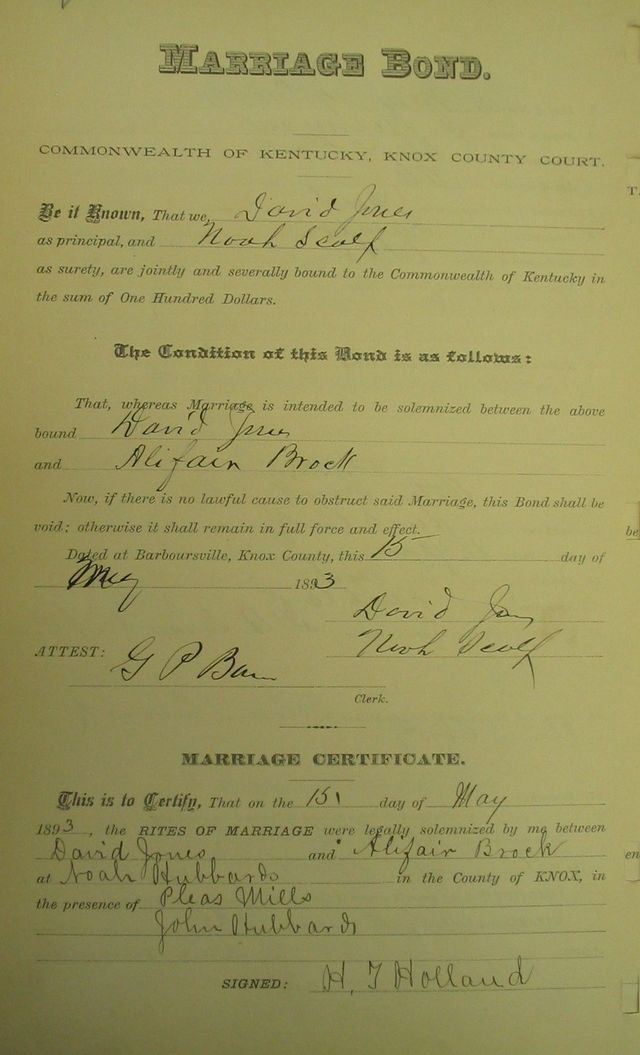 MARRIAGE BOND.
COMMONWEALTH OF KENTUCKY, KNOX COUNTY COURT.
Be it Known, That we, David Jones
as principal, and Noah Scalf
as surety, are jointly and severally bound to the Commonwealth of Kentucky in
the sum of One Hundred Dollars.
The Condition of this Bond is as follows:
That, whereas Marriage is intended to be solemnized between the above
bound David Jones
and Alifair Brock
Now, if there is no lawful cause to obstruct said Marriage, this Bond shall be
void; otherwise it shall remain in full force and effect.
Dated at Barboursville, Knox County, this 15 day of
May 1893
David Jones
Noah Scalf
ATTEST:
G P
Clerk.
MARRIAGE CERTIFICATE.
This is to Certify, That on the 15 day of May
1893, the RITES OF MARRIAGE were legally solemnized by me between
David Jones and Alifair Brock
at Noah Hubbards in the County of KNOX, in
the presence of Pleas Mills
John Hubbards
SIGNED: H. T Holland